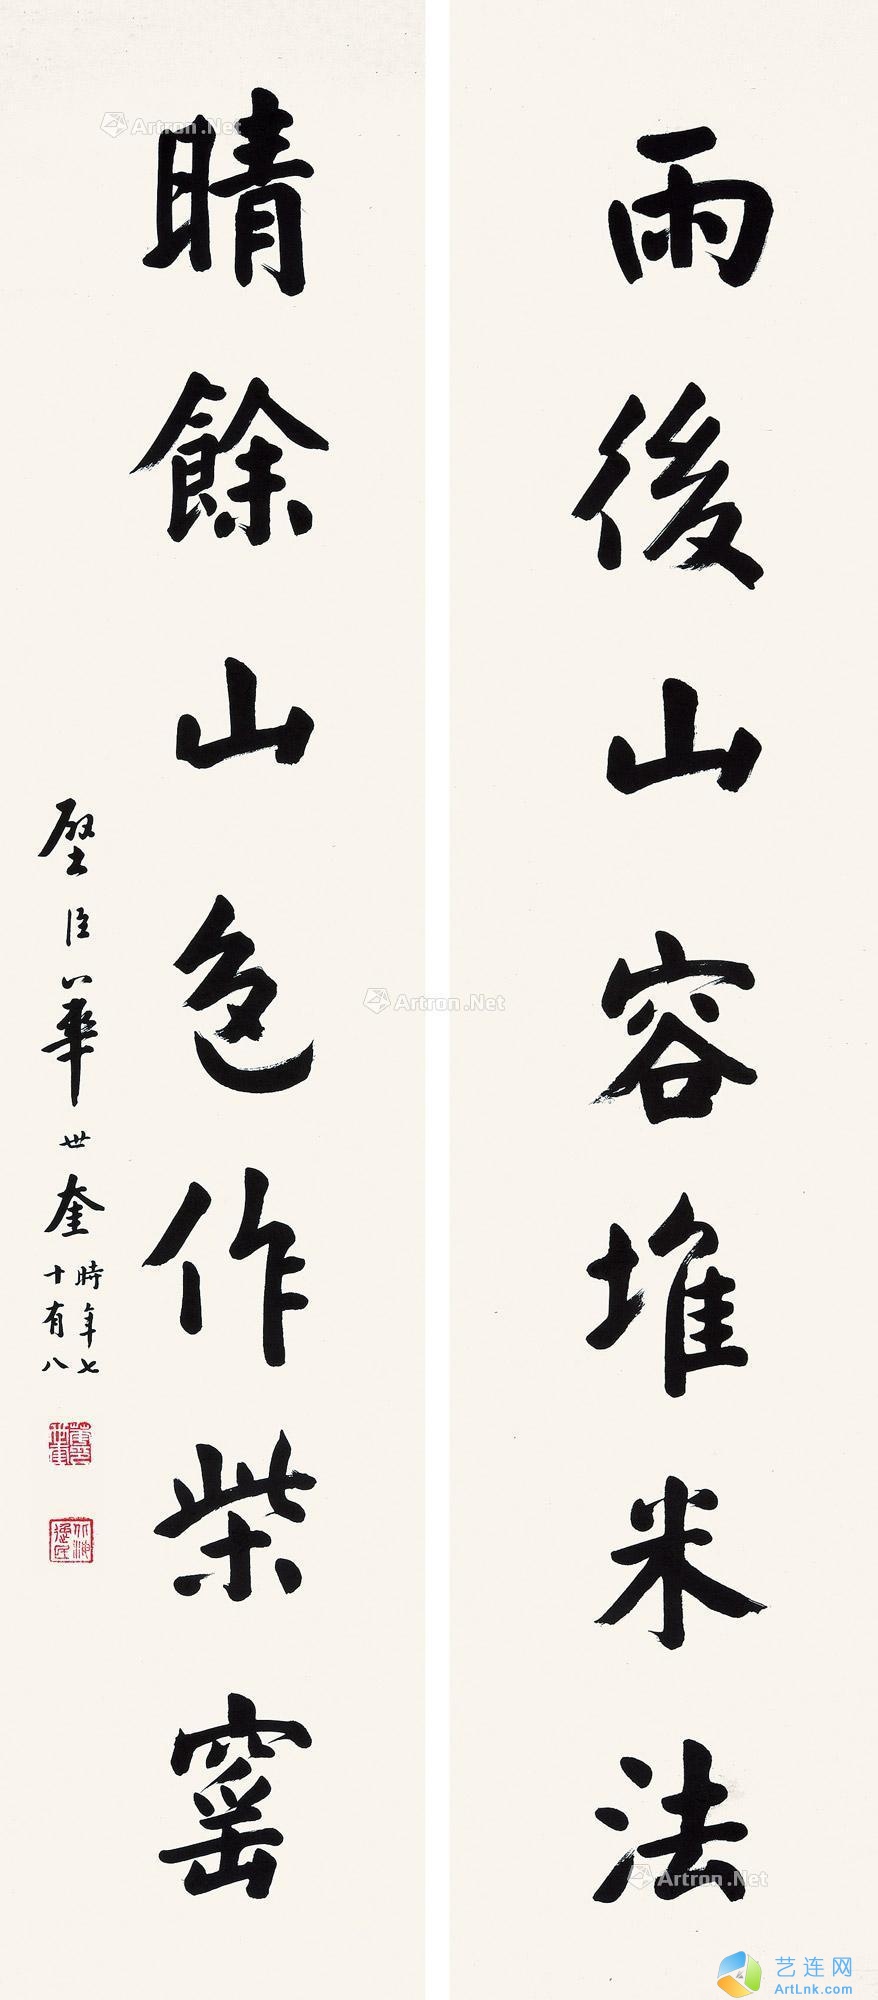 雨後山容堆米法
晴餘山色作柴窰
壁臣華世奎
時年七
十有八
Artron.Net
Artron.Net
Artron.Net
艺连网
ArtLnk.com